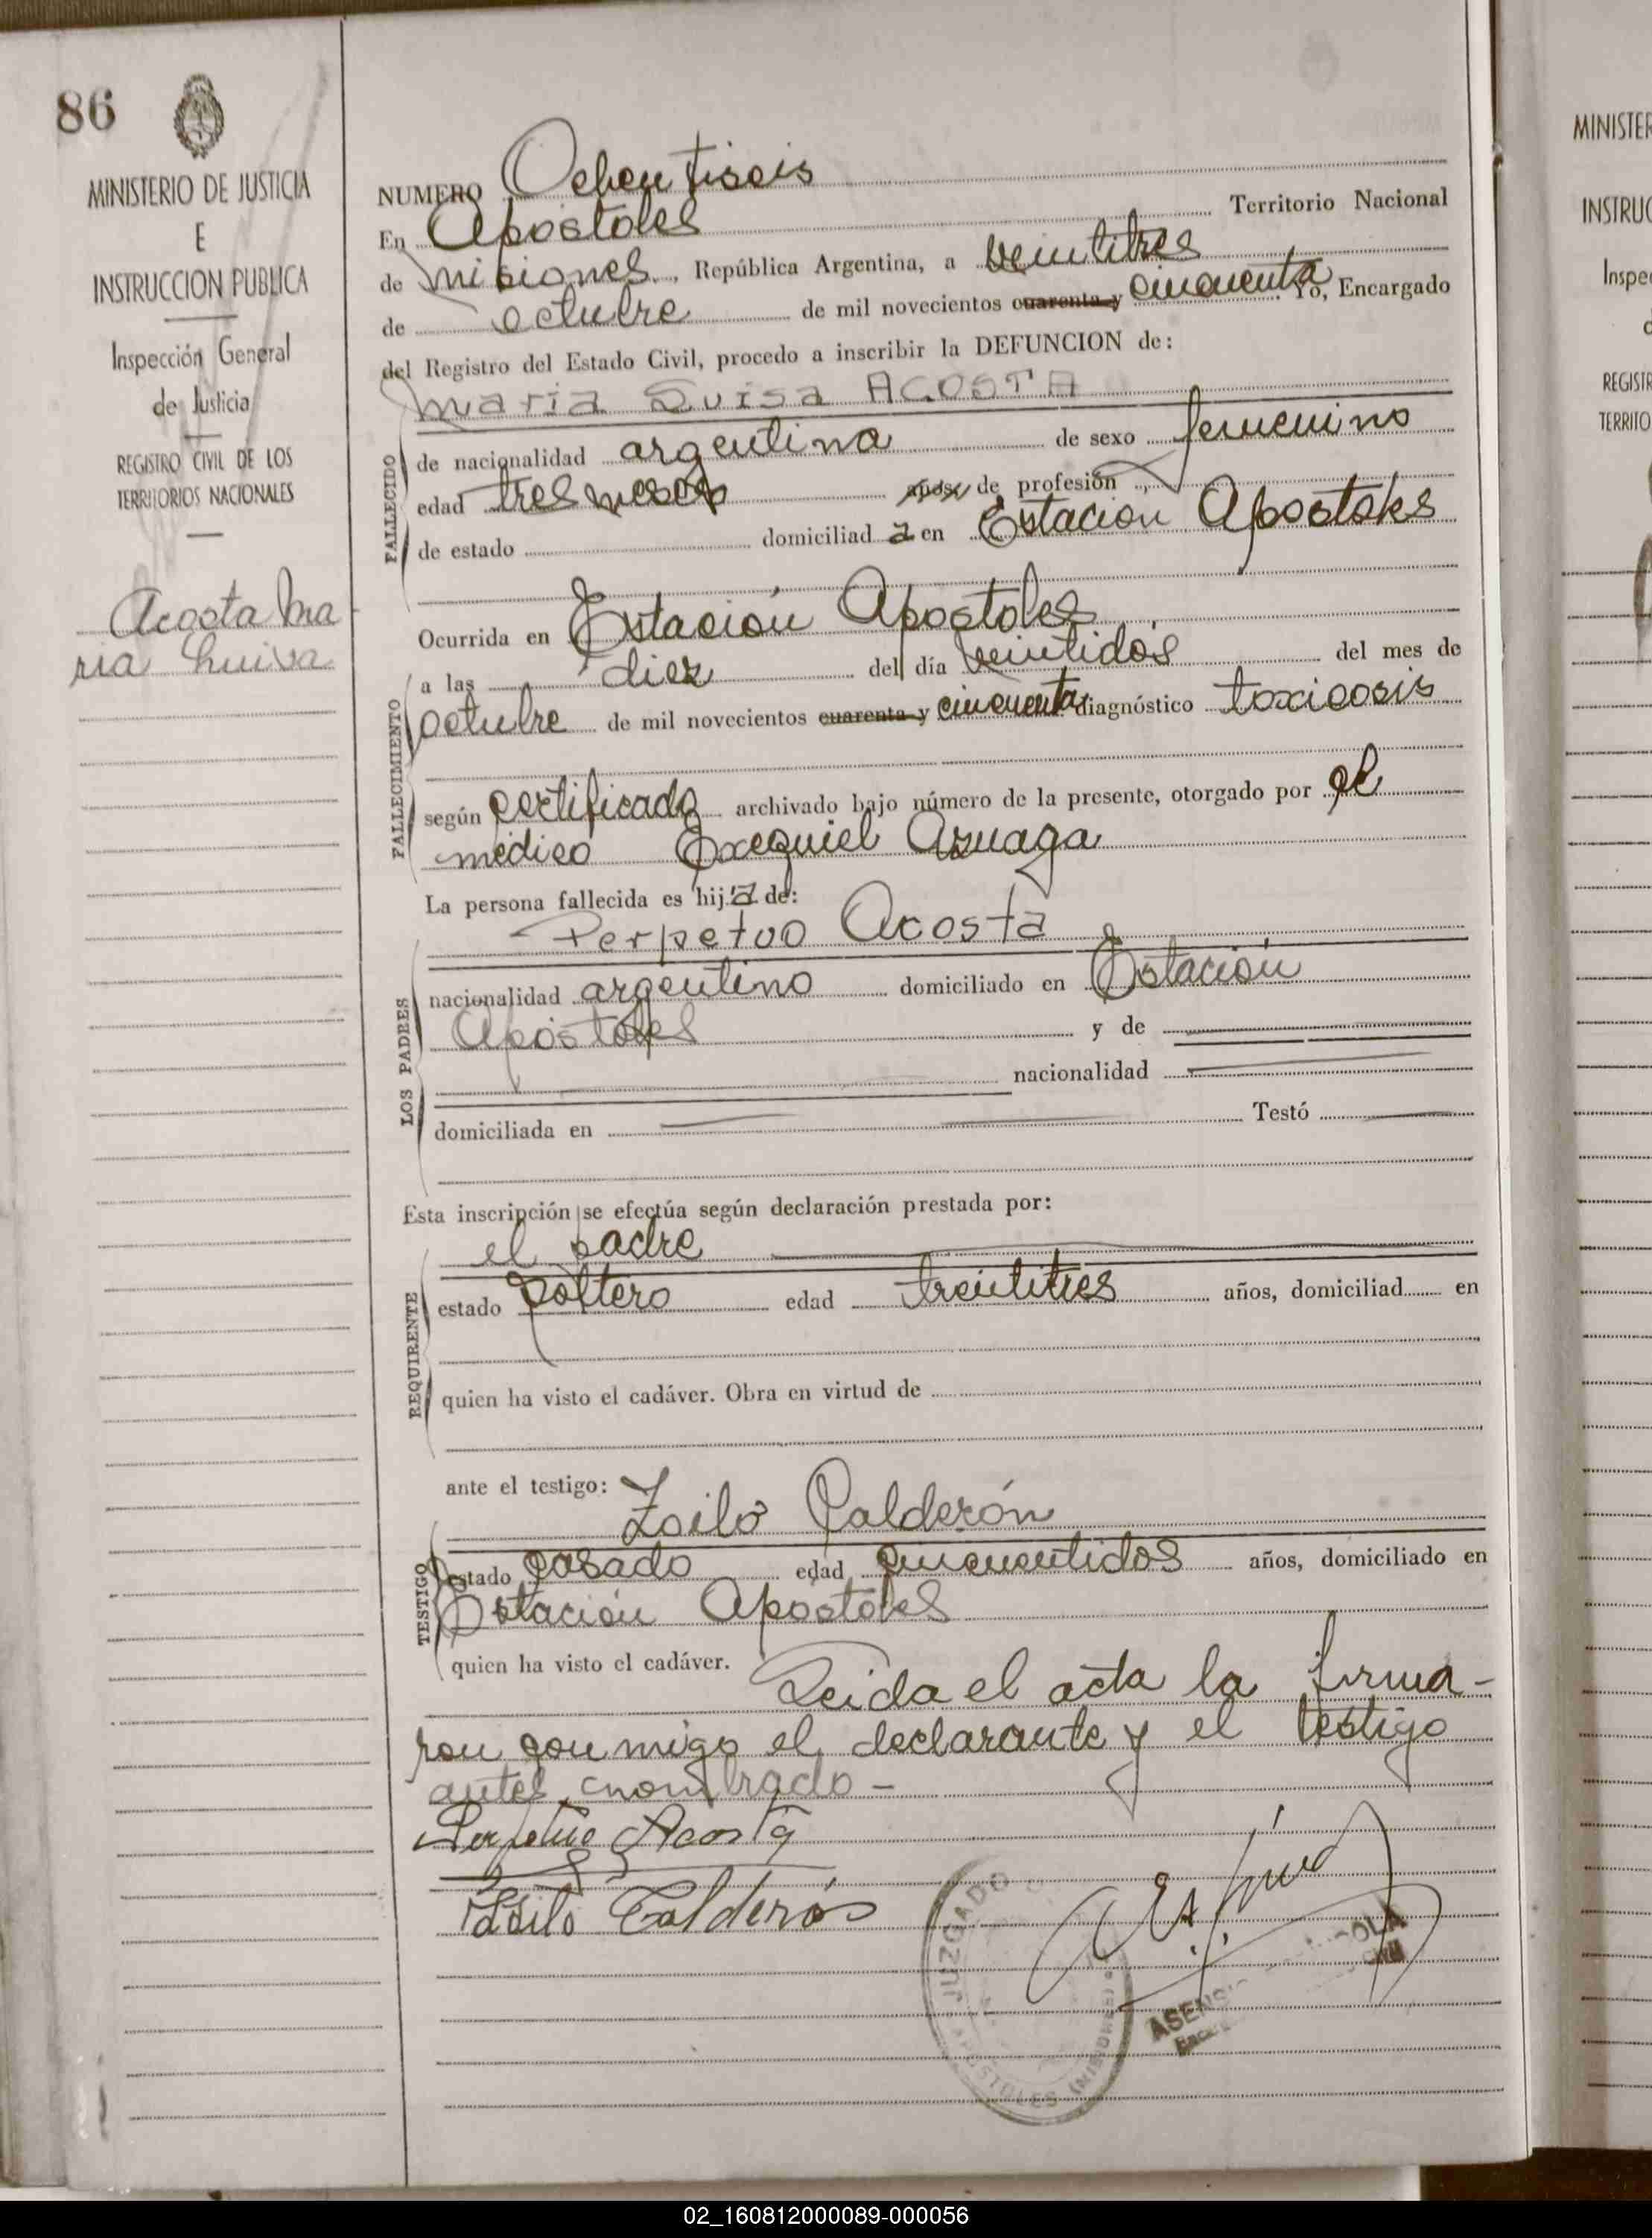 86
MINISTERIO DE JUSTICIA
E
INSTRUCCION PUBLICA
Inspección General
de Justicia
REGISTRO CIVIL DE LOS
TERRITORIOS NACIONALES
Acosta Ma
ria Luisa
NUMERO Ochentiseis
En Apostoles Territorio Nacional
de Misiones, República Argentina, a veintitres
de octubre de mil novecientos cuarenta y cincuenta. Yo, Encargado
del Registro del Estado Civil, procedo a inscribir la DEFUNCION de:
Maria Luisa ACOSTA
FALLECIDO
de nacionalidad argentina de sexo femenino
edad tres meses años, de profesión
de estado domiciliad a en Estacion Apostoles
FALLECIMIENTO
Ocurrida en Estación Apostoles
a las diez del día veintidós del mes de
octubre de mil novecientos cuarenta y cincuenta diagnóstico toxicosis
según certificado archivado bajo número de la presente, otorgado por el
médico Exequiel Azuaga
LOS PADRES
La persona fallecida es hija de:
Perpetuo Acosta
nacionalidad argentino domiciliado en Estación
Apóstoles y de
nacionalidad
domiciliada en Testó
Esta inscripción se efectúa según declaración prestada por:
REQUIRENTE
el padre
estado soltero edad treintitres años, domiciliad en
quien ha visto el cadáver. Obra en virtud de
TESTIGO
ante el testigo: Zoilo Calderón
estado casado edad cincuentidos años, domiciliado en
Estación Apostoles
quien ha visto el cadáver. Leida el acta la firma-
ron conmigo el declarante y el testigo
antes nombrado-
Perpetuo Acosta
Zoilo Calderón
JUZGADO
APOSTOLES (MISIONES)
MINISTER
INSTRUC
Inspe
d
REGISTR
TERRITO
02_160812000089-000056